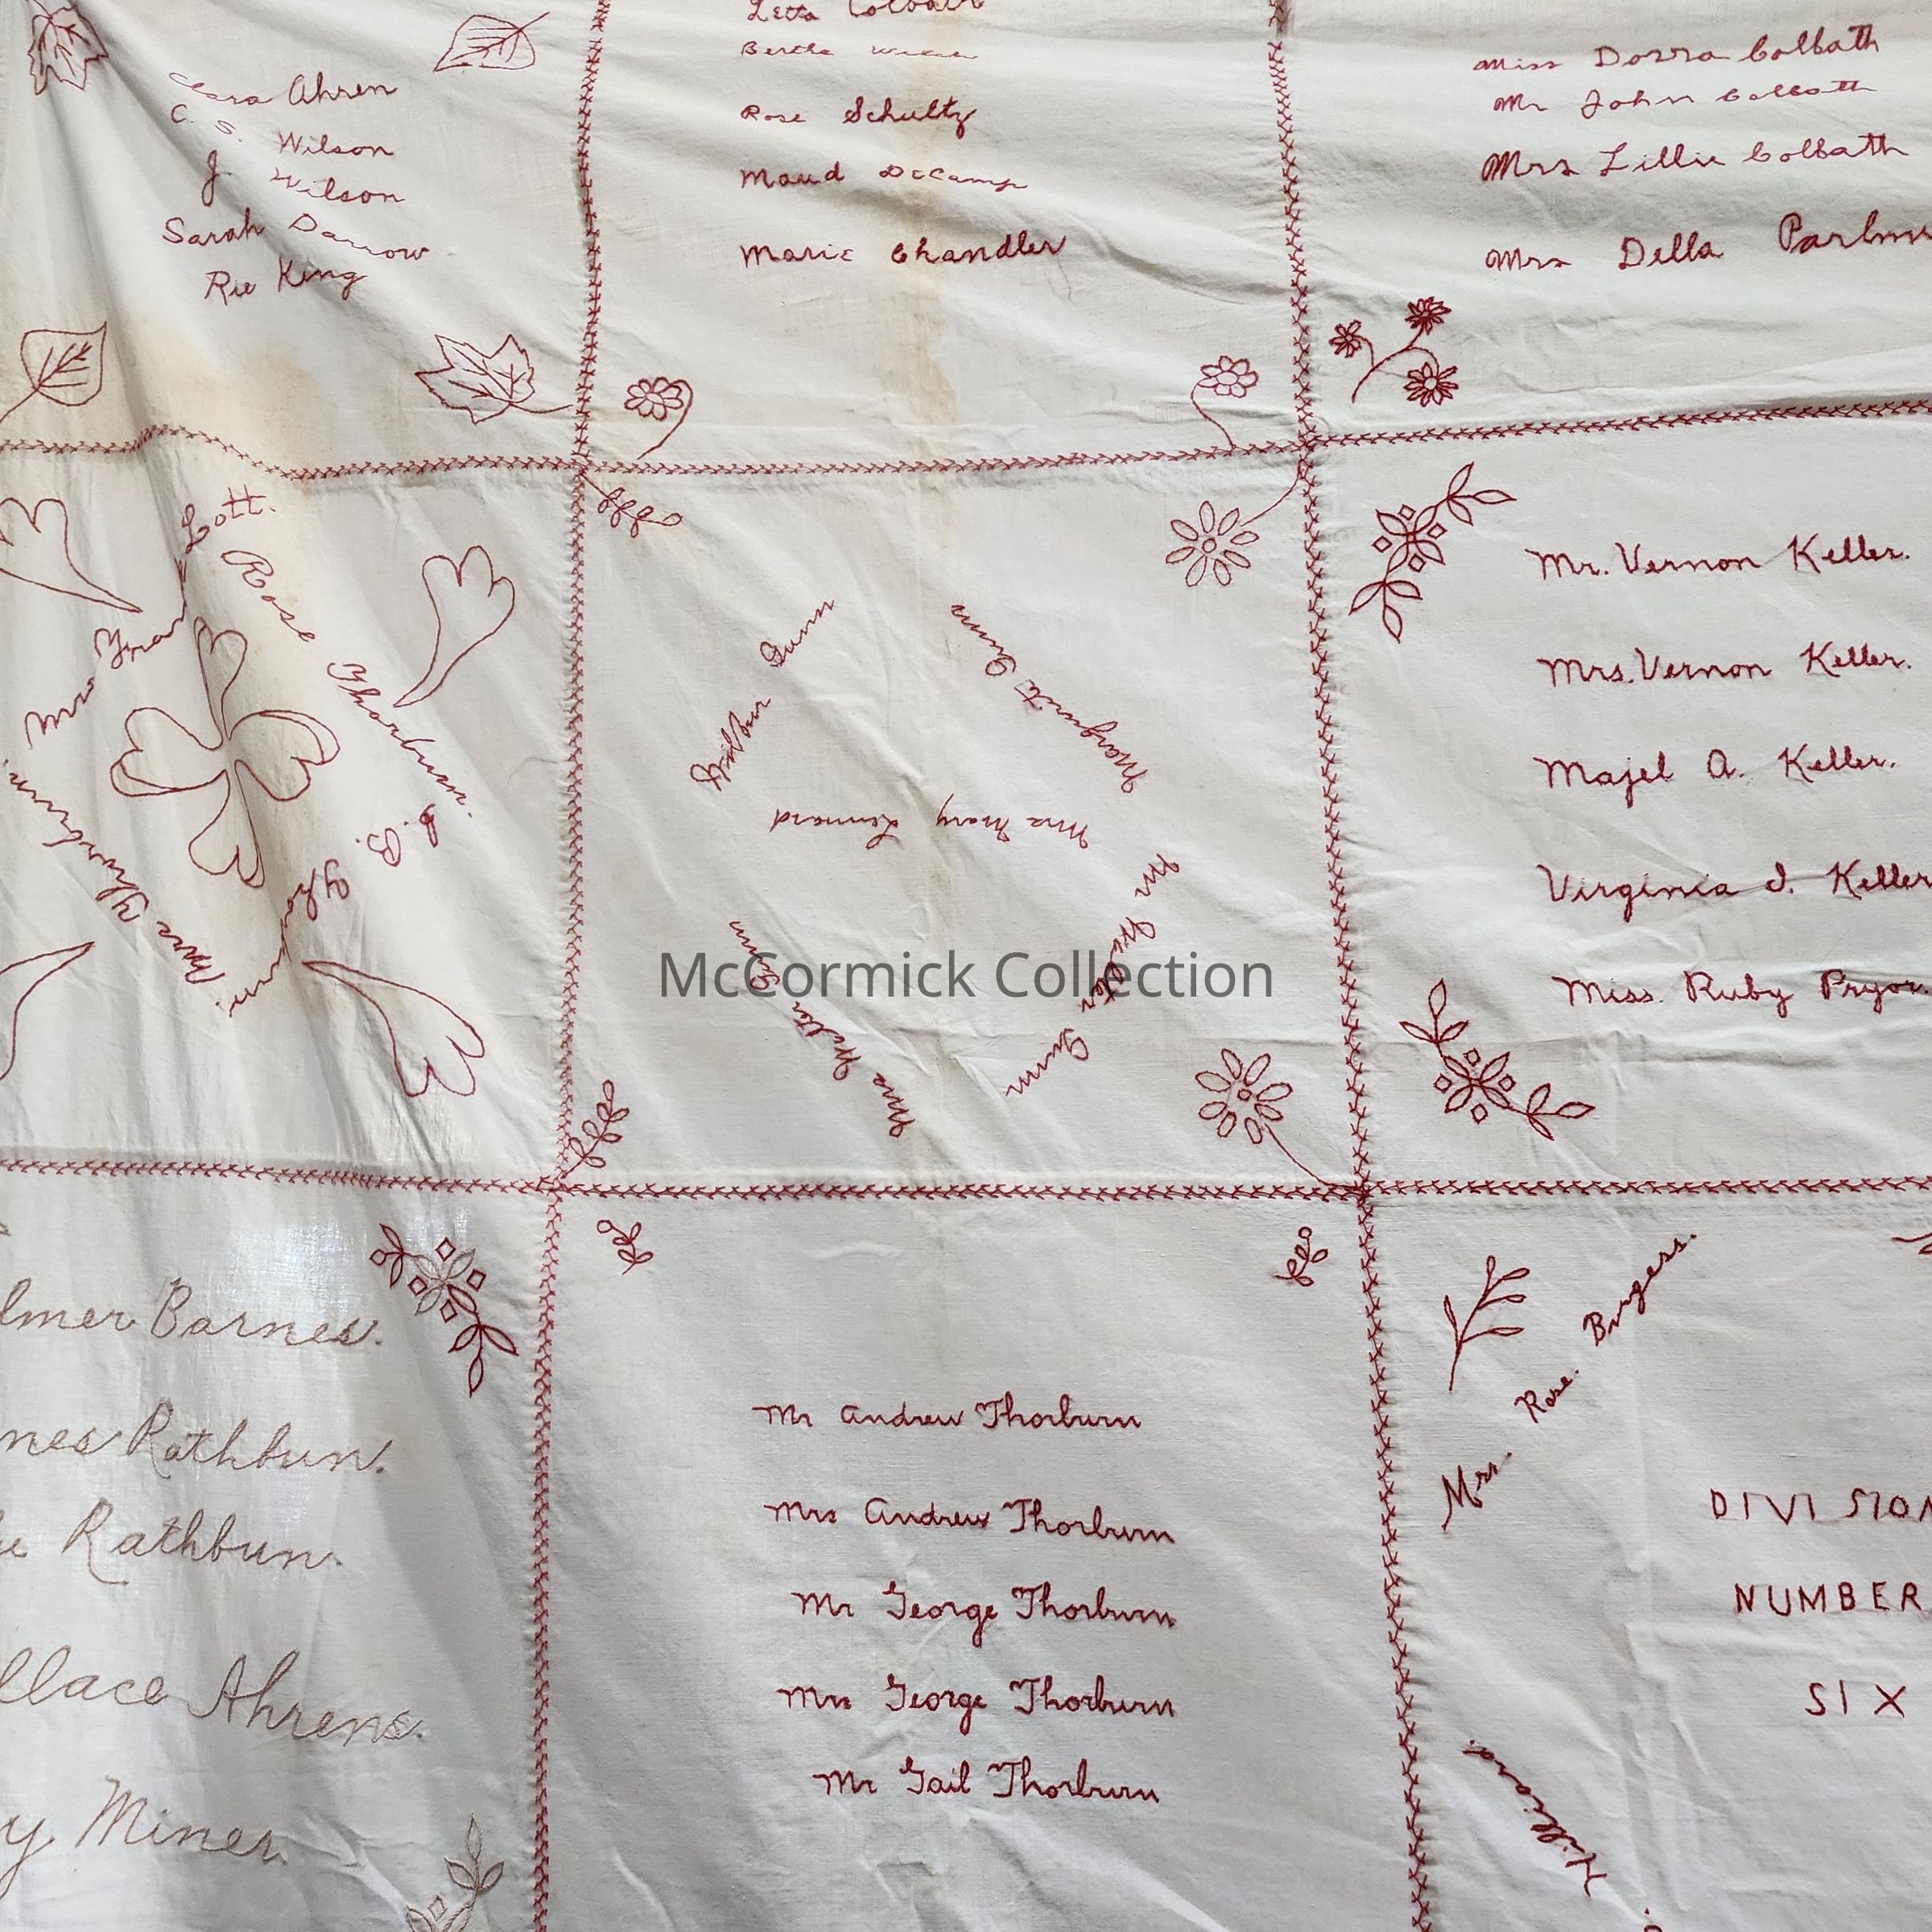 Clara Ahren
C. S. Wilson
J Wilson
Sarah Darrow
Rie King
Letta Colbath
Bertha
Rose Schultz
Maud DeCamp
Marie Chandler
Miss Dorra Colbath
Mr John Colbath
Mrs Lillie Colbath
Mrs Della
Mrs Fran Lott.
Rose Thorburn.
J. B. Thorburn.
Mrs Thorburn.
Wilbur Gunn
Margaret Gunn
Mrs Mary Lennard
Mr Walter Gunn
Mrs Walter Gunn
Mr. Vernon Keller.
Mrs. Vernon Keller.
Majel A. Keller.
Virginia J. Keller
Miss. Ruby Pryor.
McCormick Collection
lmer Barnes.
nes Rathbun.
ie Rathbun.
llace Ahrens.
y Miner.
Mr Andrew Thorburn
Mrs Andrew Thorburn
Mr George Thorburn
Mrs George Thorburn
Mr Gail Thorburn
Mrs. Rose. Burgess.
DIVISION
NUMBER
SIX